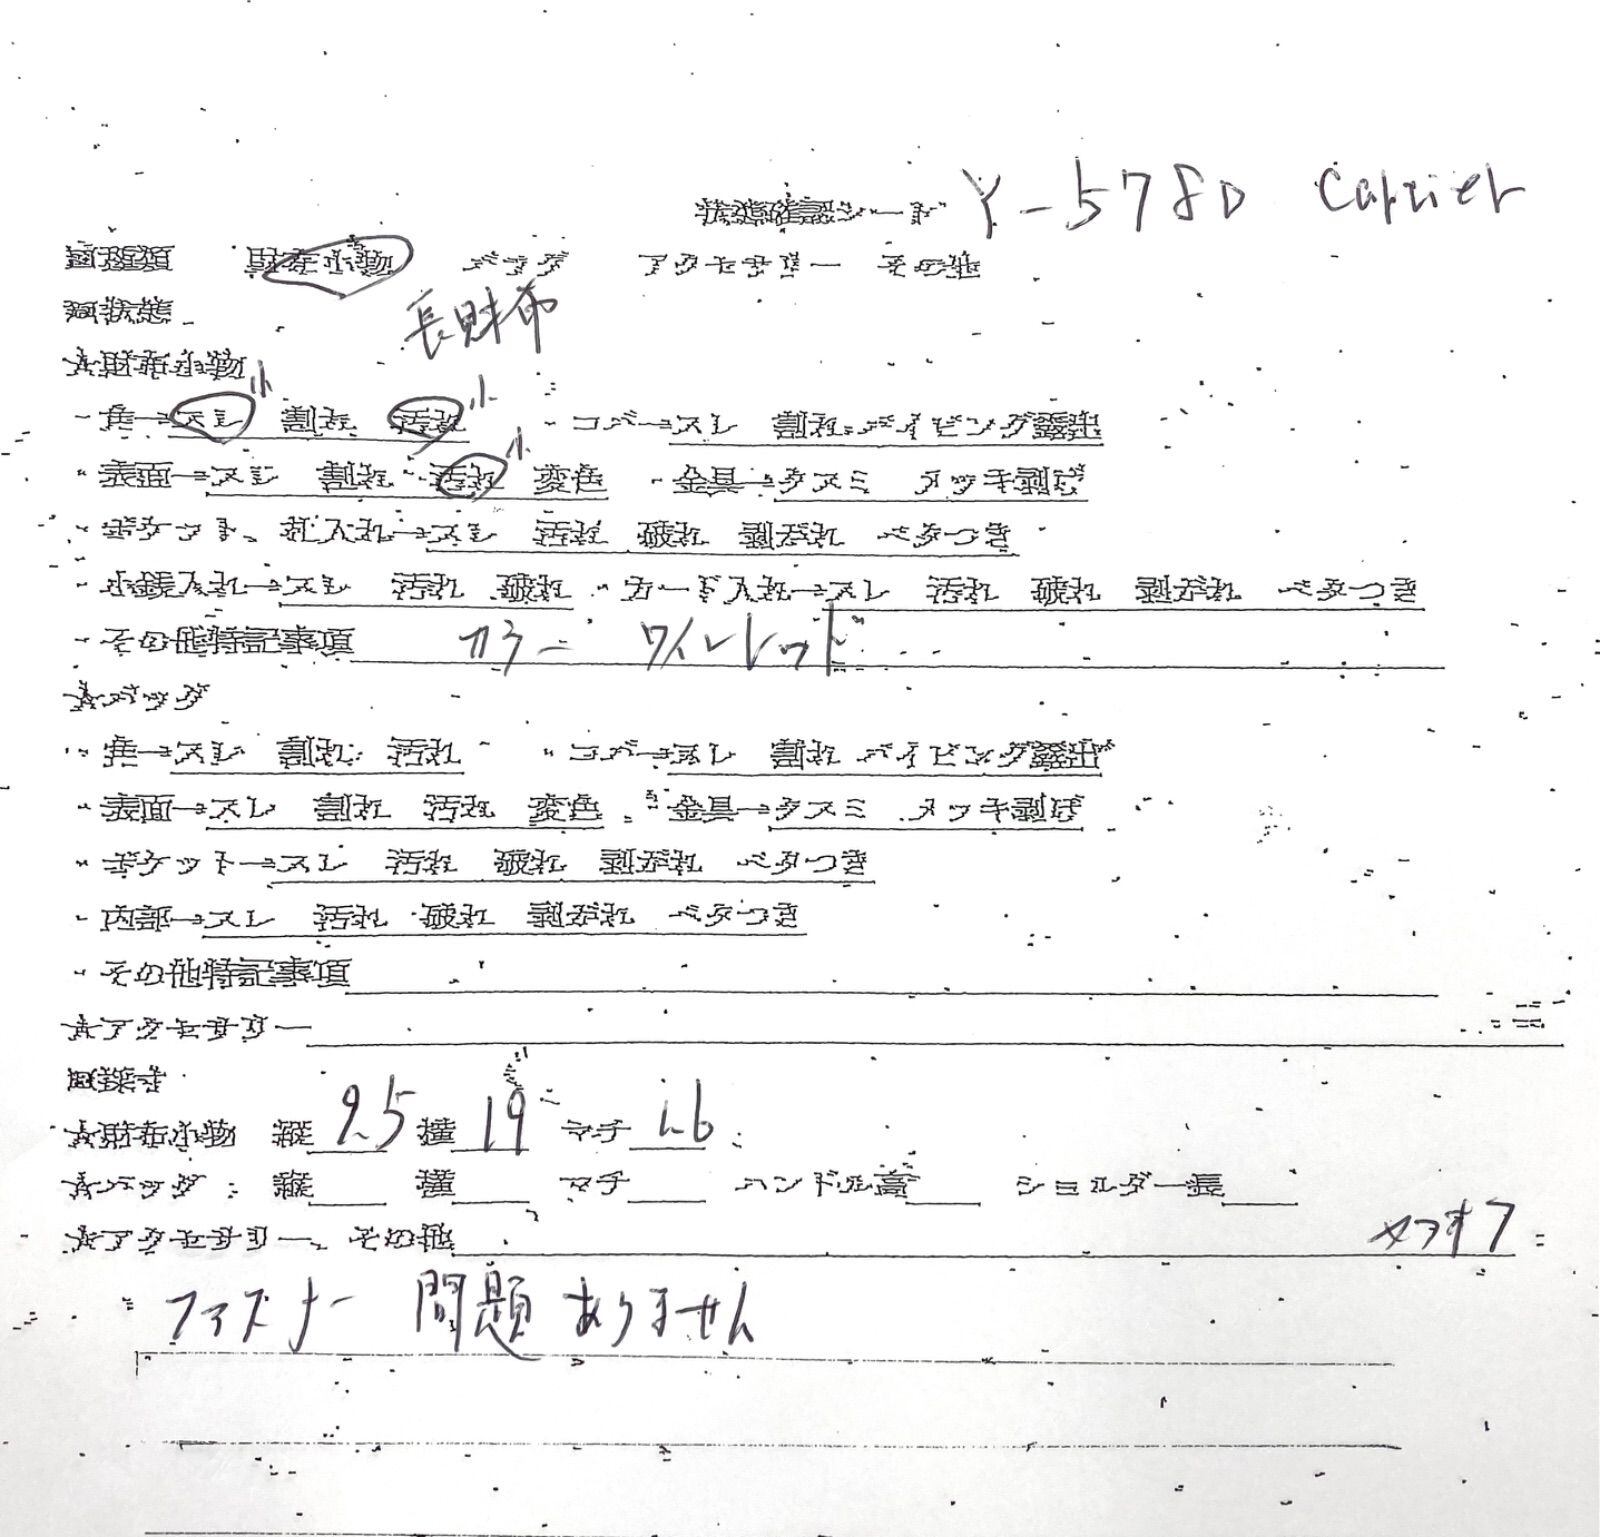 状態確認シート Y-5780 Cartier
■種類 財布小物 バッグ アクセサリー その他
■状態 長財布
★財布小物
・角→スレ小 割れ 汚れ小 ・コバ→スレ 割れ パイピング露出
・表面→スレ 割れ 汚れ小 変色 ・金具→クスミ メッキ剥げ
・ポケット、札入れ→スレ 汚れ 破れ 剥がれ ベタつき
・小銭入れ→スレ 汚れ 破れ ・カード入れ→スレ 汚れ 破れ 剥がれ ベタつき
・その他特記事項 カラー ワインレッド
★バッグ
・角→スレ 割れ 汚れ ・コバ→スレ 割れ パイピング露出
・表面→スレ 割れ 汚れ 変色 ・金具→クスミ メッキ剥げ
・ポケット→スレ 汚れ 破れ 剥がれ ベタつき
・内部→スレ 汚れ 破れ 剥がれ ベタつき
・その他特記事項
★アクセサリー
■採寸
★財布小物 縦 9.5 横 19 マチ
★バッグ 縦 横 マチ ハンドル高 ショルダー長
★アクセサリー、その他 ヤフオク
ファスナー 問題ありません